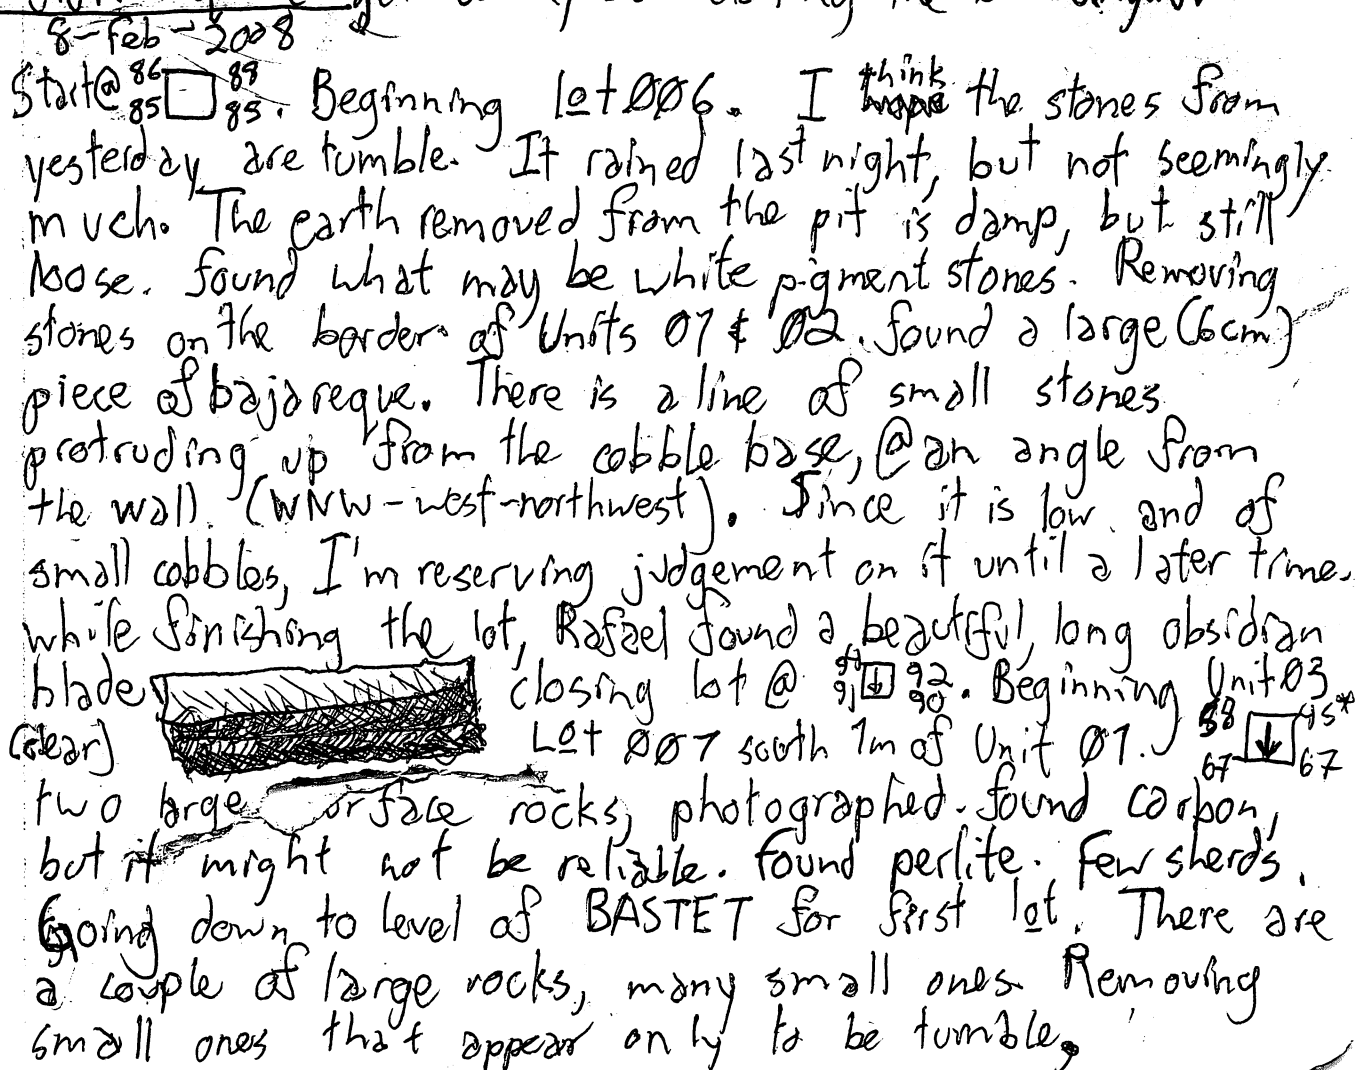 8-Feb-2008
Start@ 86 88
85 85. Beginning Lot ØØ6. I think the stones from
yesterday are tumble. It rained last night, but not seemingly
much. The earth removed from the pit is damp, but still
loose. found what may be white pigment stones. Removing
stones on the border of Units 01 & 02. found a large (6cm)
piece of bajareque. There is a line of small stones
protruding up from the cobble base, @ an angle from
the wall (WNW-west-northwest). Since it is low and of
small cobbles, I'm reserving judgement on it until a later time.
while finishing the lot, Rafael found a beautiful, long obsidian
blade closing lot @ 91 92 90. Beginning Unit 03
[clear] Lot ØØ7 south 1m of Unit Ø1. 88 45*
67 67
two large rocks, photographed. found carbon,
but it might not be reliable. found perlite. Few sherds.
Going down to level of BASTET for first lot. There are
a couple of large rocks, many small ones. Removing
small ones that appear only to be tumble.